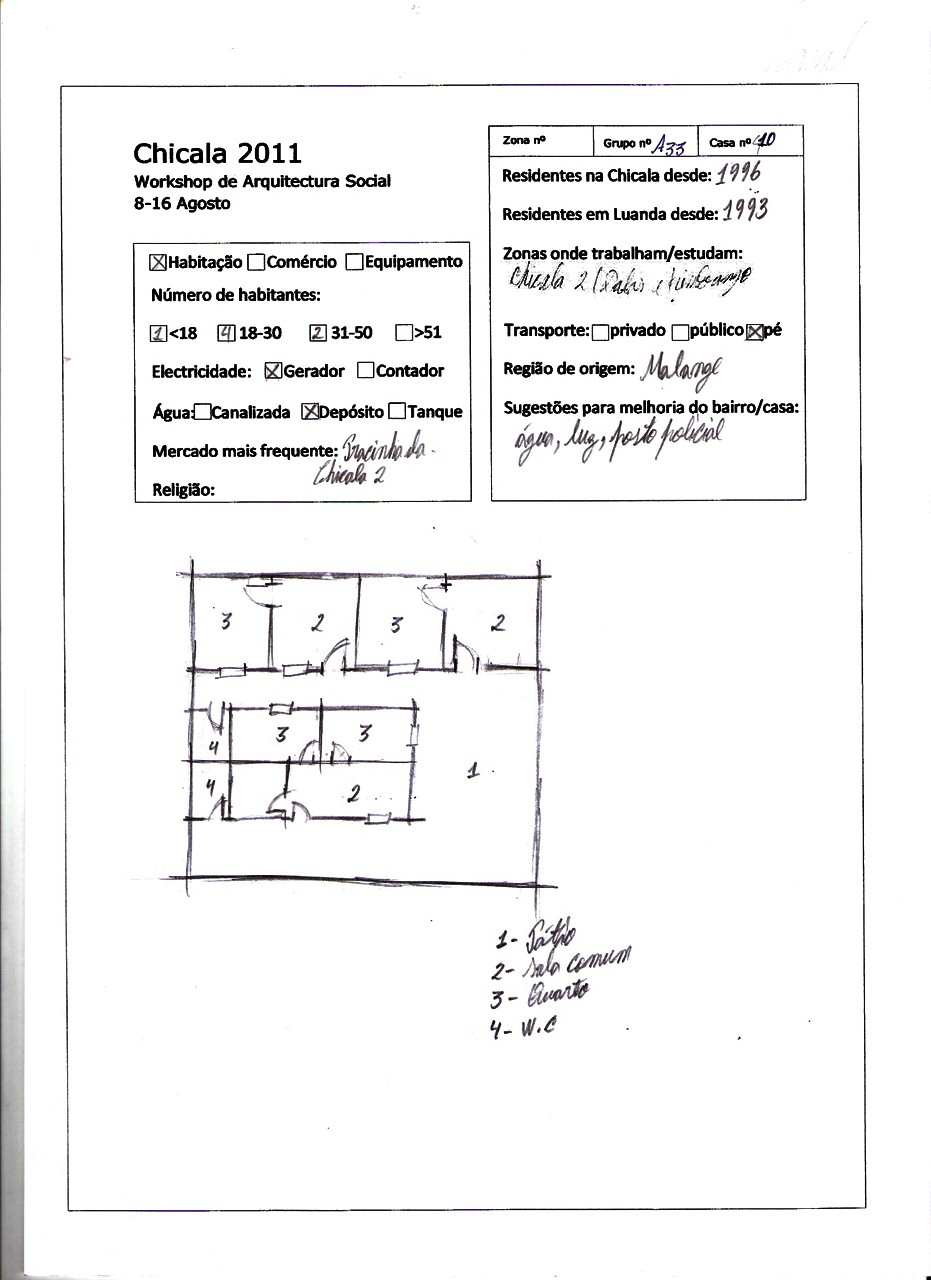 Chicala 2011
Workshop de Arquitectura Social
8-16 Agosto
Habitação Comércio Equipamento
Número de habitantes:
1 <18 4 18-30 2 31-50 >51
Electricidade: Gerador Contador
Água: Canalizada Depósito Tanque
Mercado mais frequente: Pracinha da
Chicala 2
Religião:
Zona nº Grupo nº A33 Casa nº 10
Residentes na Chicala desde: 1996
Residentes em Luanda desde: 1993
Zonas onde trabalham/estudam:
Chicala 2
Transporte: privado público pé
Região de origem: Malange
Sugestões para melhoria do bairro/casa:
água, luz, posto policial
3 2 3 2
3 3
4
4 2 1
1- Pátio
2- Sala comum
3- Quarto
4- W.C